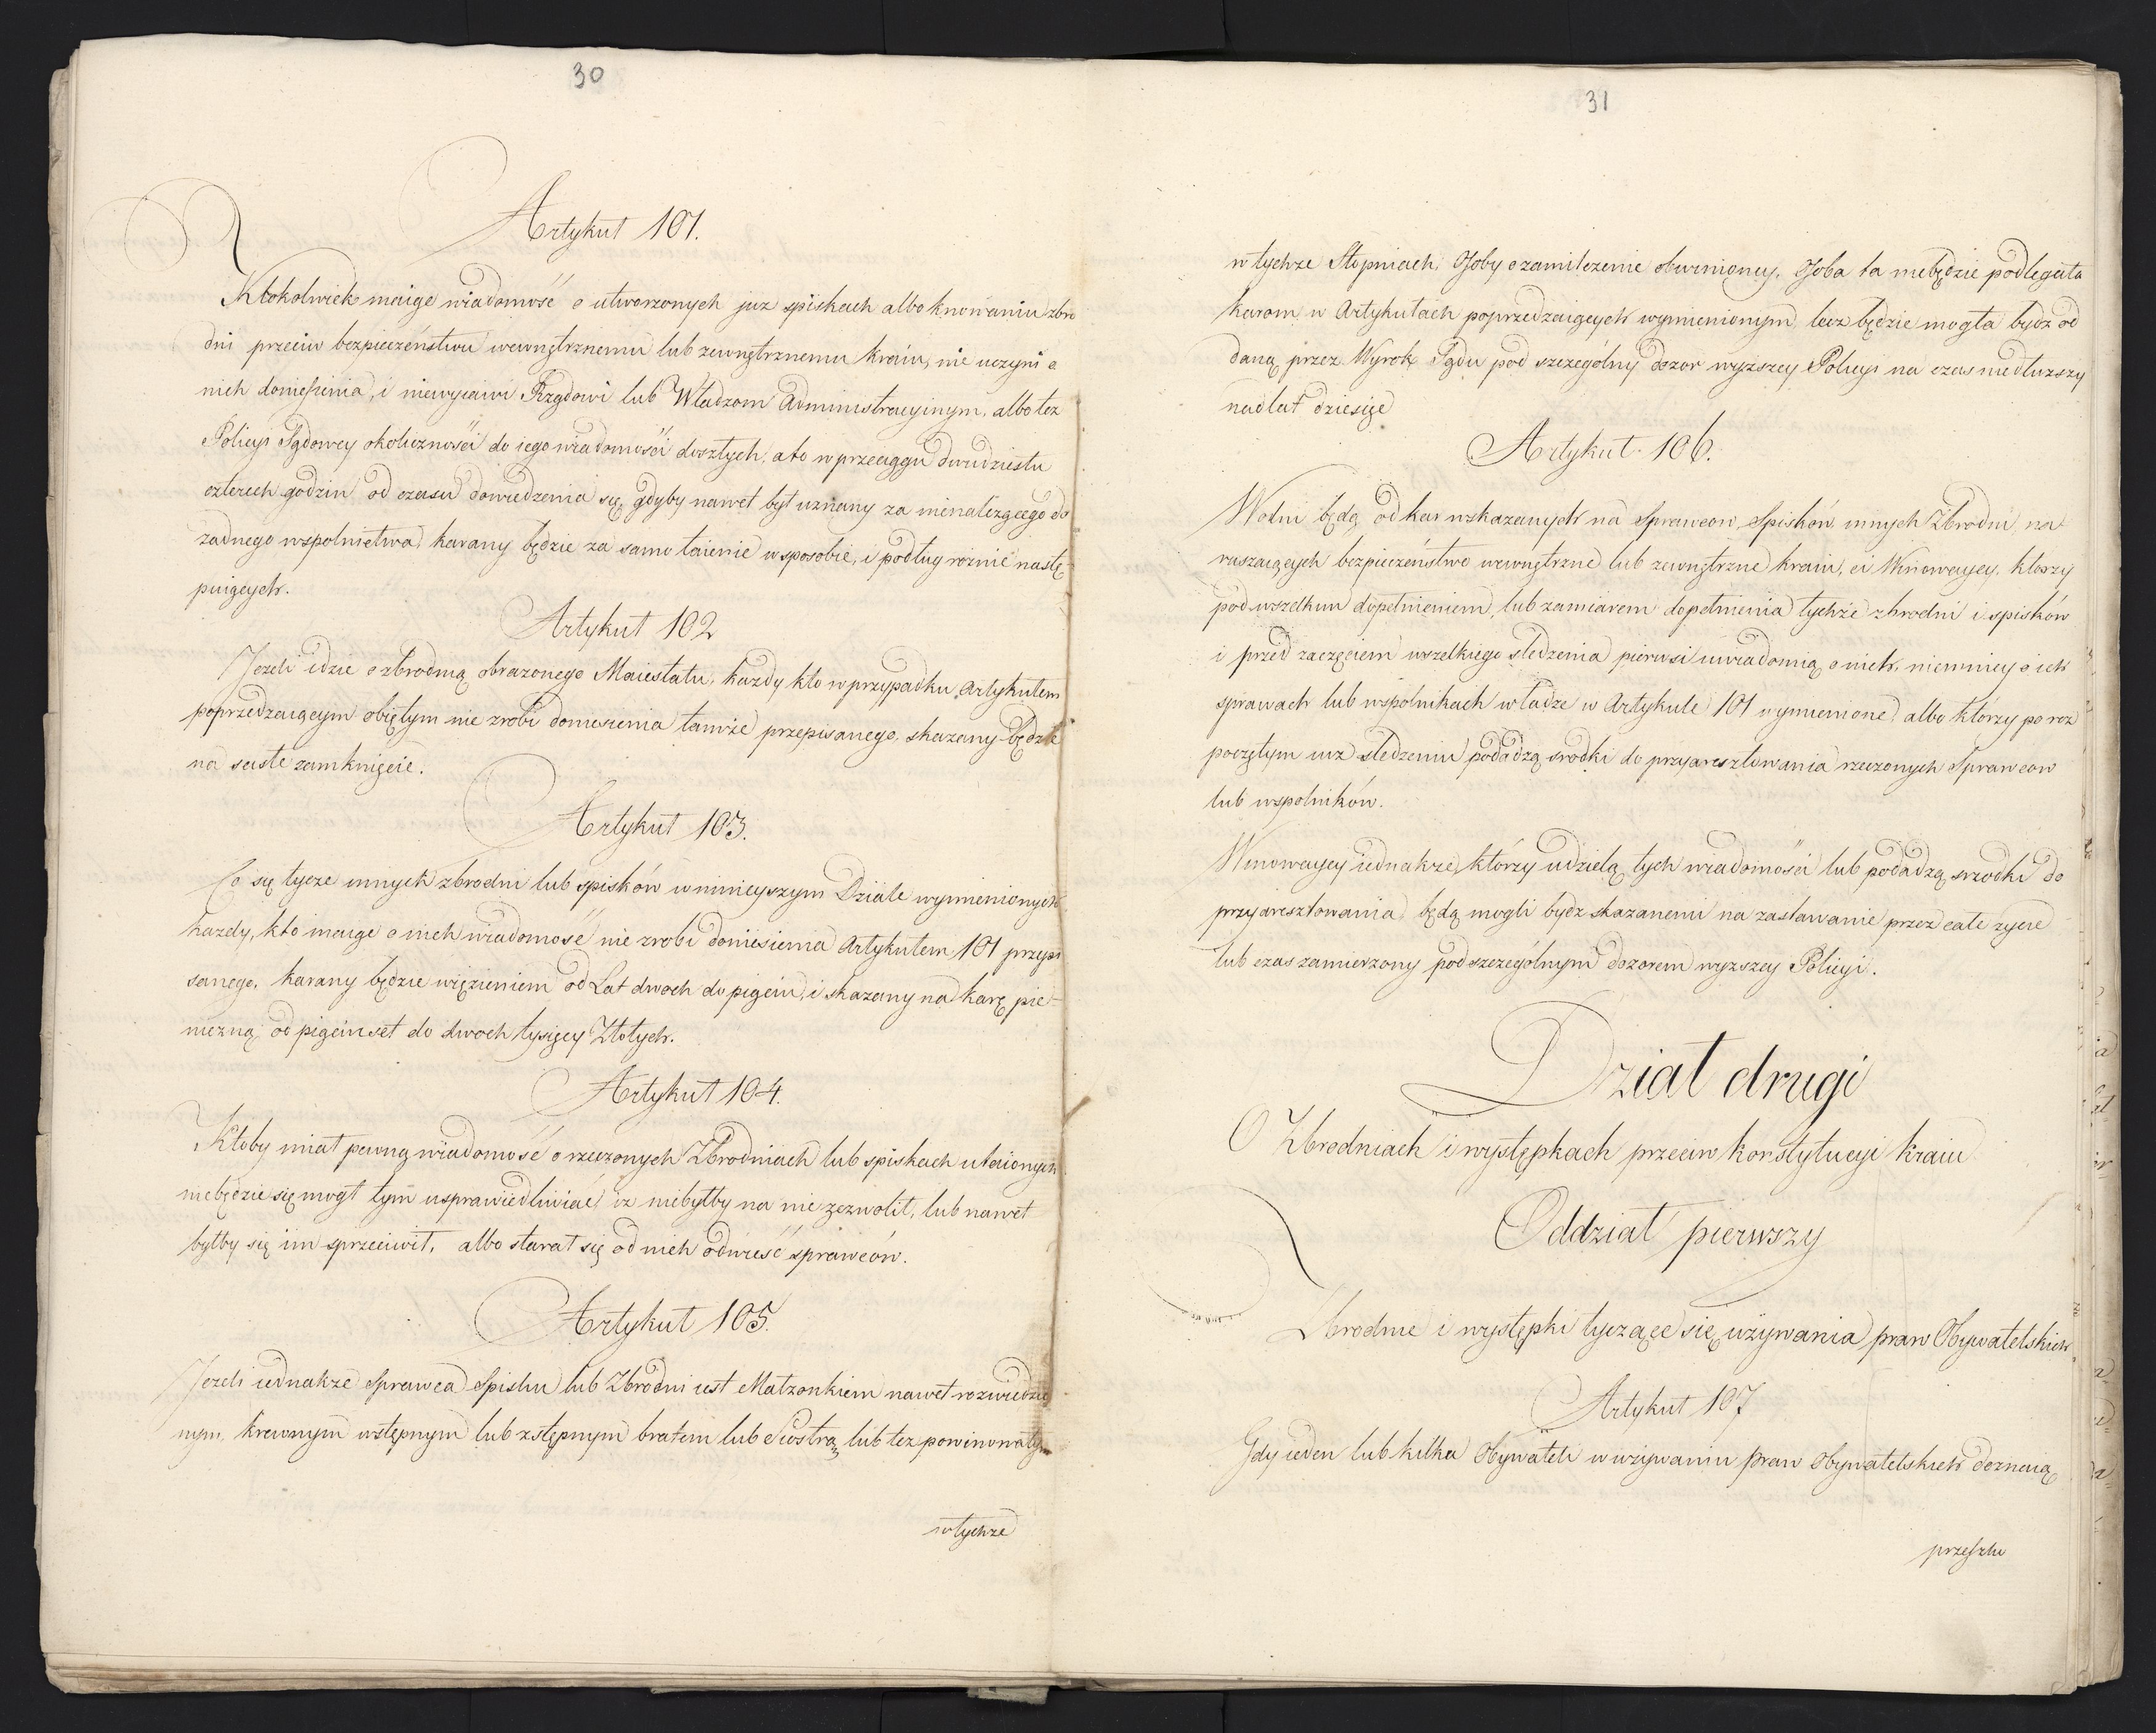 30
Artykuł 101.
Ktokolwiek maiąc wiadomość o utworzonych juz spiskach albo knowaniu zbro
dni przeciw bezpieczeństwu wewnętrznemu lub zewnętrznemu kraiu, nie uczyni o
nich doniesienia, i niewyiawi Rządowi lub Władzom Administracyinym, albo tez
Policyi Sądowey okoliczności do iego wiadomości doszłych, a to w przeciągu dwudziestu
czterech godzin od czasu dowiedzenia się, gdyby nawet był uznany za nienalezącego do
zadnego wspolnictwa, karany będzie za samo taienie w sposobie, i podług róznic nastę-
puiących.
Artykuł 102
Jezeli idzie o zbrodnią obrazonego Maiestatu, kazdy kto w przypadku Artykułem
poprzedzaiącym obiętym nie zrobi doniesienia tamże przepisanego, skazany będzie
na scisłe zamknięcie.
Artykuł 103.
Co się tycze innych zbrodni lub spisków w ninieyszym Dziale wymienionych
kazdy, kto maiąc o nich wiadomość nie zrobi doniesienia Artykułem 101 przepi
sanego, karany będzie więzieniem od Lat dwoch do pięciu, i skazany na karę pie-
niezną od pięciuset do dwoch tysięcy Złotych.
Artykuł 104.
Ktoby miał pewną wiadomość o rzeczonych Zbrodniach lub spiskach utaionych
niebędzie się mogł tym usprawiedliwiać, iz niebyłby na nie zezwolił, lub nawet
byłby się im sprzeciwił, albo starał się od nich odwieść sprawców.
Artykuł 105.
Jezeli iednakze Sprawca Spisku lub Zbrodni iest Małzonkiem nawet rozwiedzio
nym, krewnym wstępnym lub zstępnym bratem lub Siostrą, lub tez powinowatym
w tychze
31
w tychze Stopniach, Osoby o zamilczenie obwinioney, Osoba ta niebędzie podlegała
karom w Artykułach poprzedzaiących wymienionym, lecz będzie mogła bydz od
daną przez Wyrok Sądu pod szczególny dozor wyzszey Policyi na czas niedłuzszy
nad lat dziesięć
Artykuł 106.
Wolni będą od kar wskazanych na Sprawcow, Spisków innych Zbrodni na-
ruszaiących bezpieczeństwo wewnętrzne lub zewnętrzne kraiu, ci Winowaycy, ktorzy
pod wszelkim dopełnieniem, lub zamiarem dopełnienia tychże zbrodni i spisków
i przed zaczęciem wszelkiego sledzenia pierwsi uwiadomią o nich, niemniey o ich
sprawach lub wspolnikach władze w Artykule 101 wymienione, albo ktorzy po roz
poczętym iuz sledzeniu podadzą srodki do przyaresztowania rzeczonych Sprawcow
lub wspolników.
Winowaycy iednakze, którzy udzielą tych wiadomości lub podadzą srzodki do
przyaresztowania będą mogli bydz skazanemi na zastawanie przez całe zycie
lub czas zamierzony pod szczególnym dozorem wyzszey Policyi.
Dział drugi
O Zbrodniach i występkach przeciw konstytucyi kraiu
Oddział pierwszy
Zbrodnie i występki tyczące się używania praw Obywatelskich
Artykuł 107
Gdy ieden lub kilka Obywateli w używaniu praw Obywatelskich doznaią
przeszko